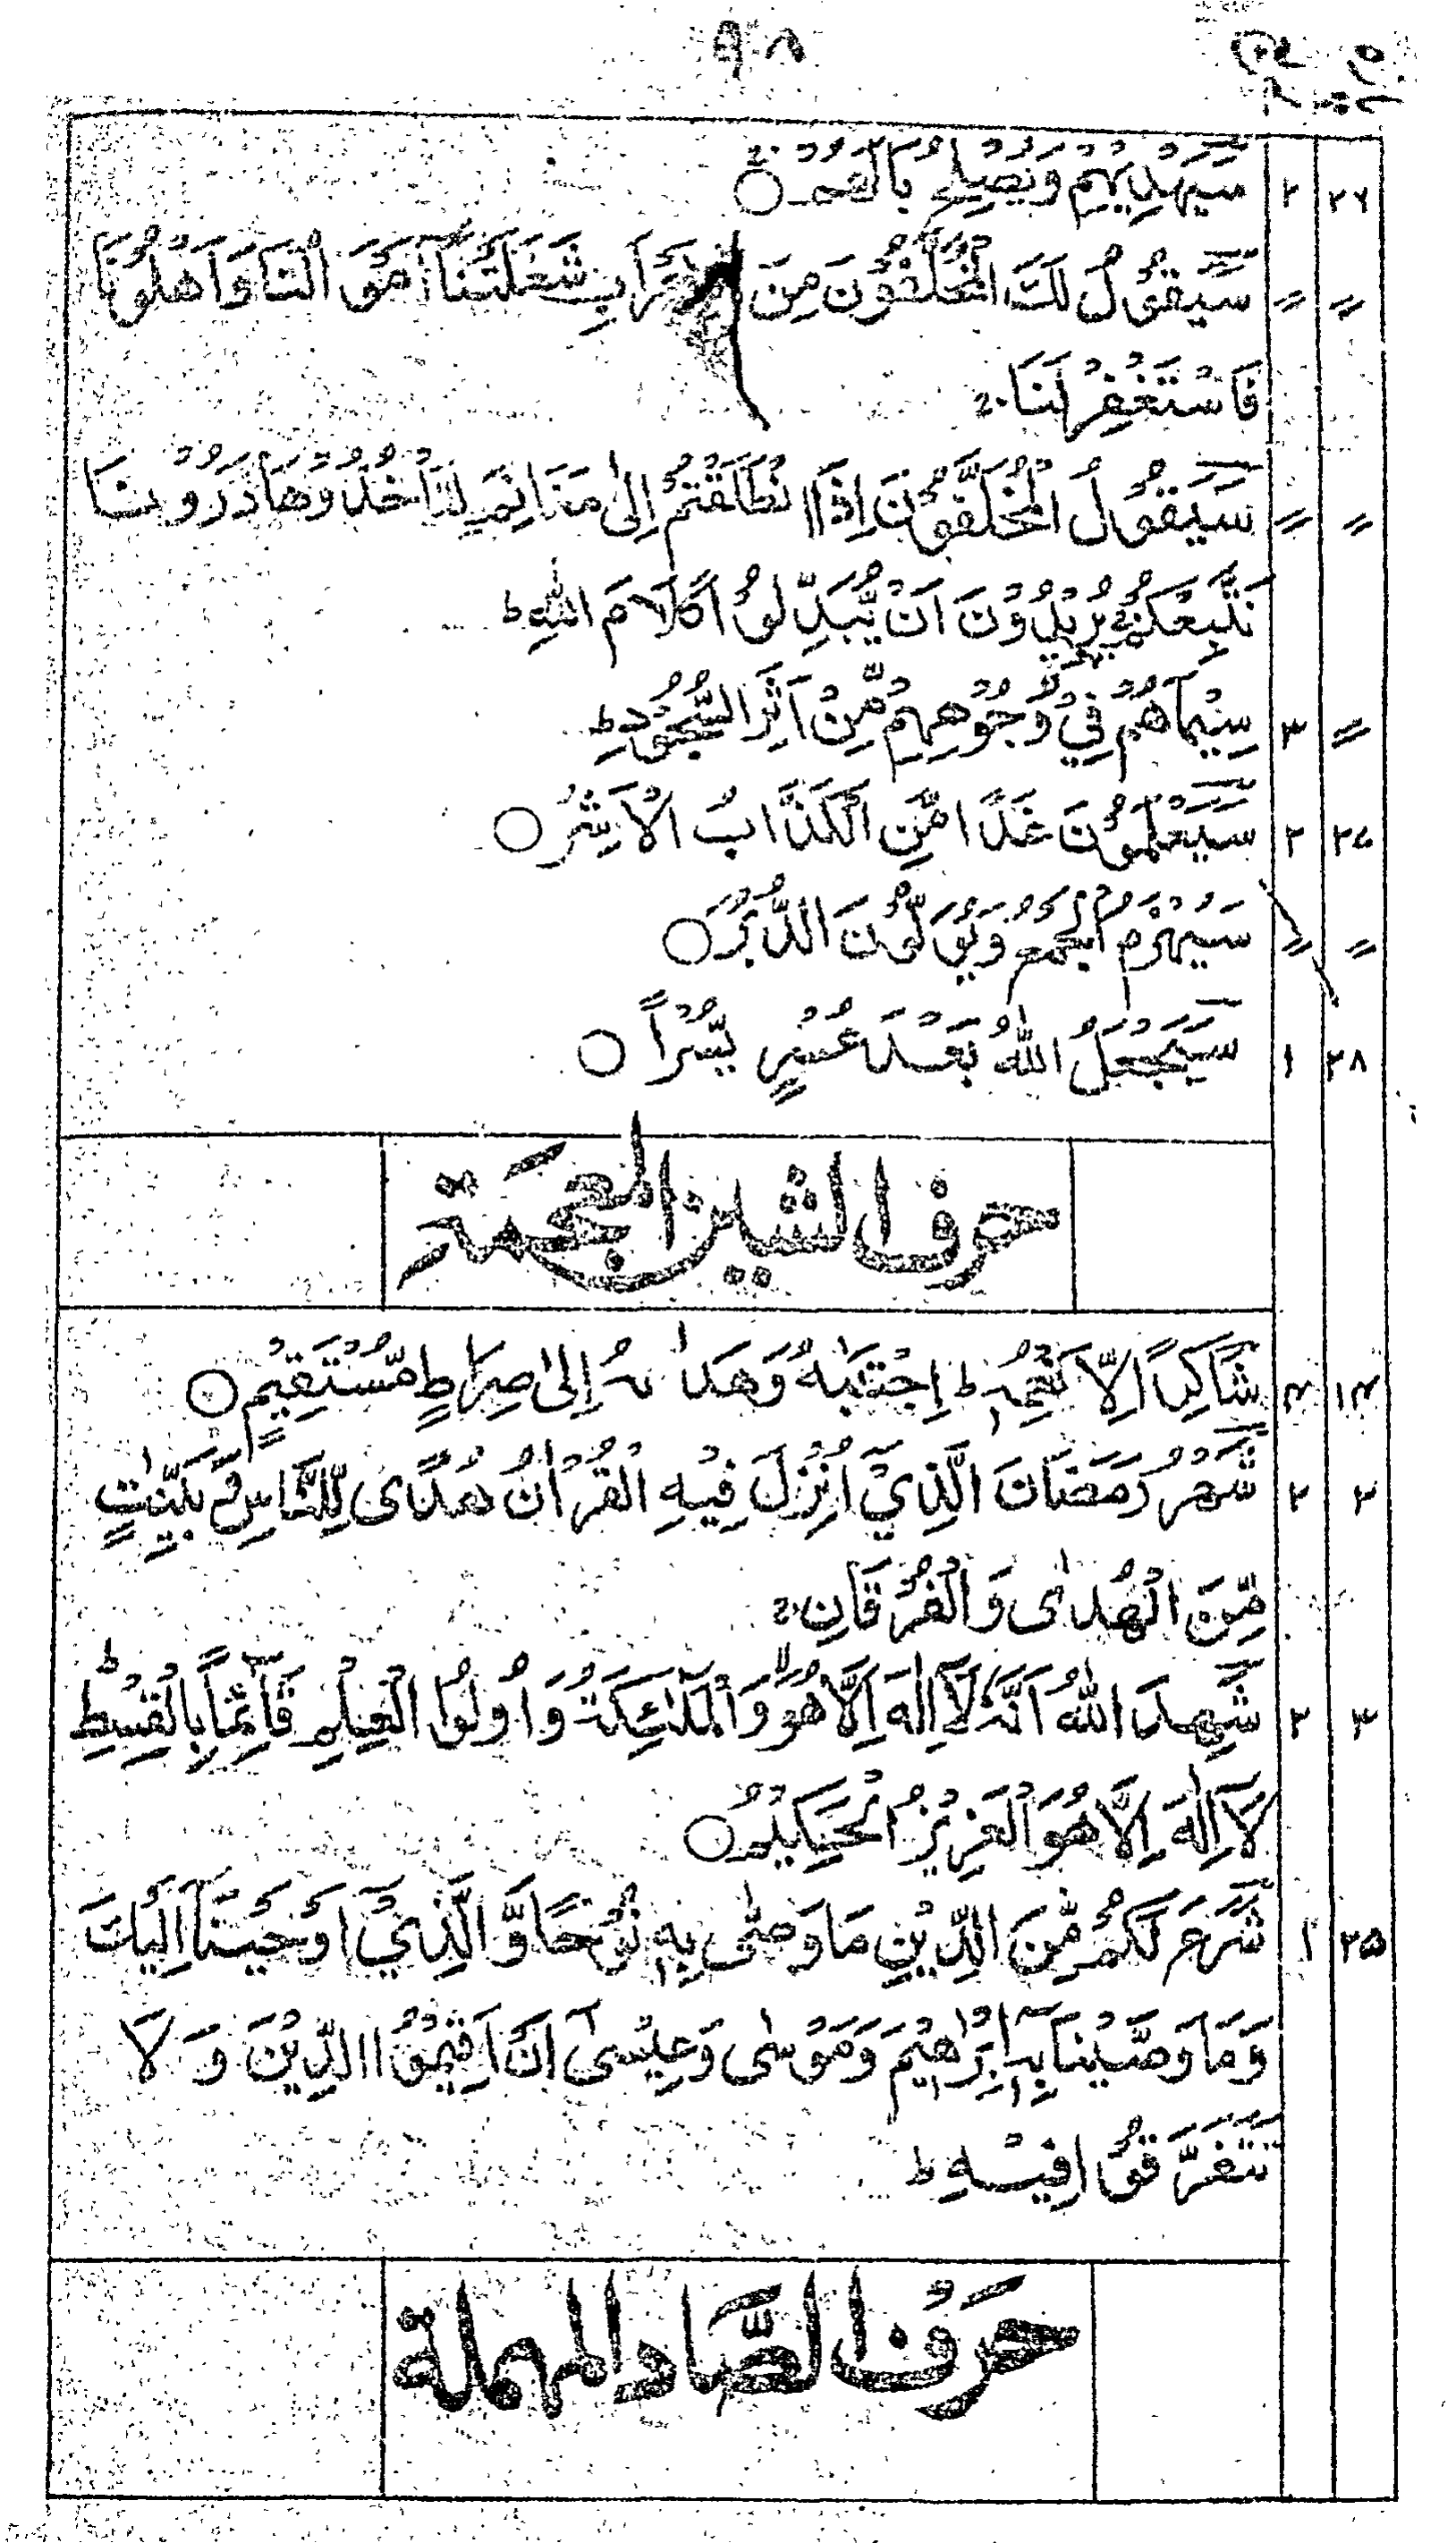 ٩٨
٢٦ ٢ سَيَهْدِيْهِمْ وَيُصْلِحُ بَالَهُمْ ۚ ○
〃 〃 سَيَقُوْلُ لَكَ الْمُخَلَّفُوْنَ مِنَ الْاَعْرَابِ شَغَلَتْنَآ اَمْوَالُنَا وَاَهْلُوْنَا
فَاسْتَغْفِرْ لَنَا ۚ
〃 〃 سَيَقُوْلُ الْمُخَلَّفُوْنَ اِذَا انْطَلَقْتُمْ اِلٰى مَغَانِمَ لِتَاْخُذُوْهَا ذَرُوْنَا
نَتَّبِعْكُمْ ۚ يُرِيْدُوْنَ اَنْ يُّبَدِّلُوْا كَلَامَ اللّٰهِ ط
〃 ٣ سِيْمَاهُمْ فِيْ وُجُوْهِهِمْ مِّنْ اَثَرِ السُّجُوْدِ ط
٢٧ ٢ سَيَعْلَمُوْنَ غَدًا مَّنِ الْكَذَّابُ الْاَشِرُ ○
〃 〃 سَيُهْزَمُ الْجَمْعُ وَيُوَلُّوْنَ الدُّبُرَ ○
٢٨ ١ سَيَجْعَلُ اللّٰهُ بَعْدَ عُسْرٍ يُّسْرًا ○
حرف الشين المعجمة
١٤ ٤ شَاكِرًا لِّاَنْعُمِهٖ ط اِجْتَبٰىهُ وَهَدٰىهُ اِلٰى صِرَاطٍ مُّسْتَقِيْمٍ ○
٢ ٢ شَهْرُ رَمَضَانَ الَّذِيْٓ اُنْزِلَ فِيْهِ الْقُرْاٰنُ هُدًى لِّلنَّاسِ وَ بَيِّنٰتٍ
مِّنَ الْهُدٰى وَالْفُرْقَانِ ۚ
٣ ٢ شَهِدَ اللّٰهُ اَنَّهٗ لَآ اِلٰهَ اِلَّا هُوَ ۙ وَالْمَلٰٓئِكَةُ وَاُولُوا الْعِلْمِ قَآئِمًا بِالْقِسْطِ ط
لَآ اِلٰهَ اِلَّا هُوَ الْعَزِيْزُ الْحَكِيْمُ ○
٢٥ ١ شَرَعَ لَكُمْ مِّنَ الدِّيْنِ مَا وَصّٰى بِهٖ نُوْحًا وَّ الَّذِيْٓ اَوْحَيْنَآ اِلَيْكَ
وَمَا وَصَّيْنَا بِهٖٓ اِبْرٰهِيْمَ وَمُوْسٰى وَعِيْسٰىٓ اَنْ اَقِيْمُوا الدِّيْنَ وَ لَا
تَتَفَرَّقُوْا فِيْهِ ط
حَرْفُ الصَّاد المهملة